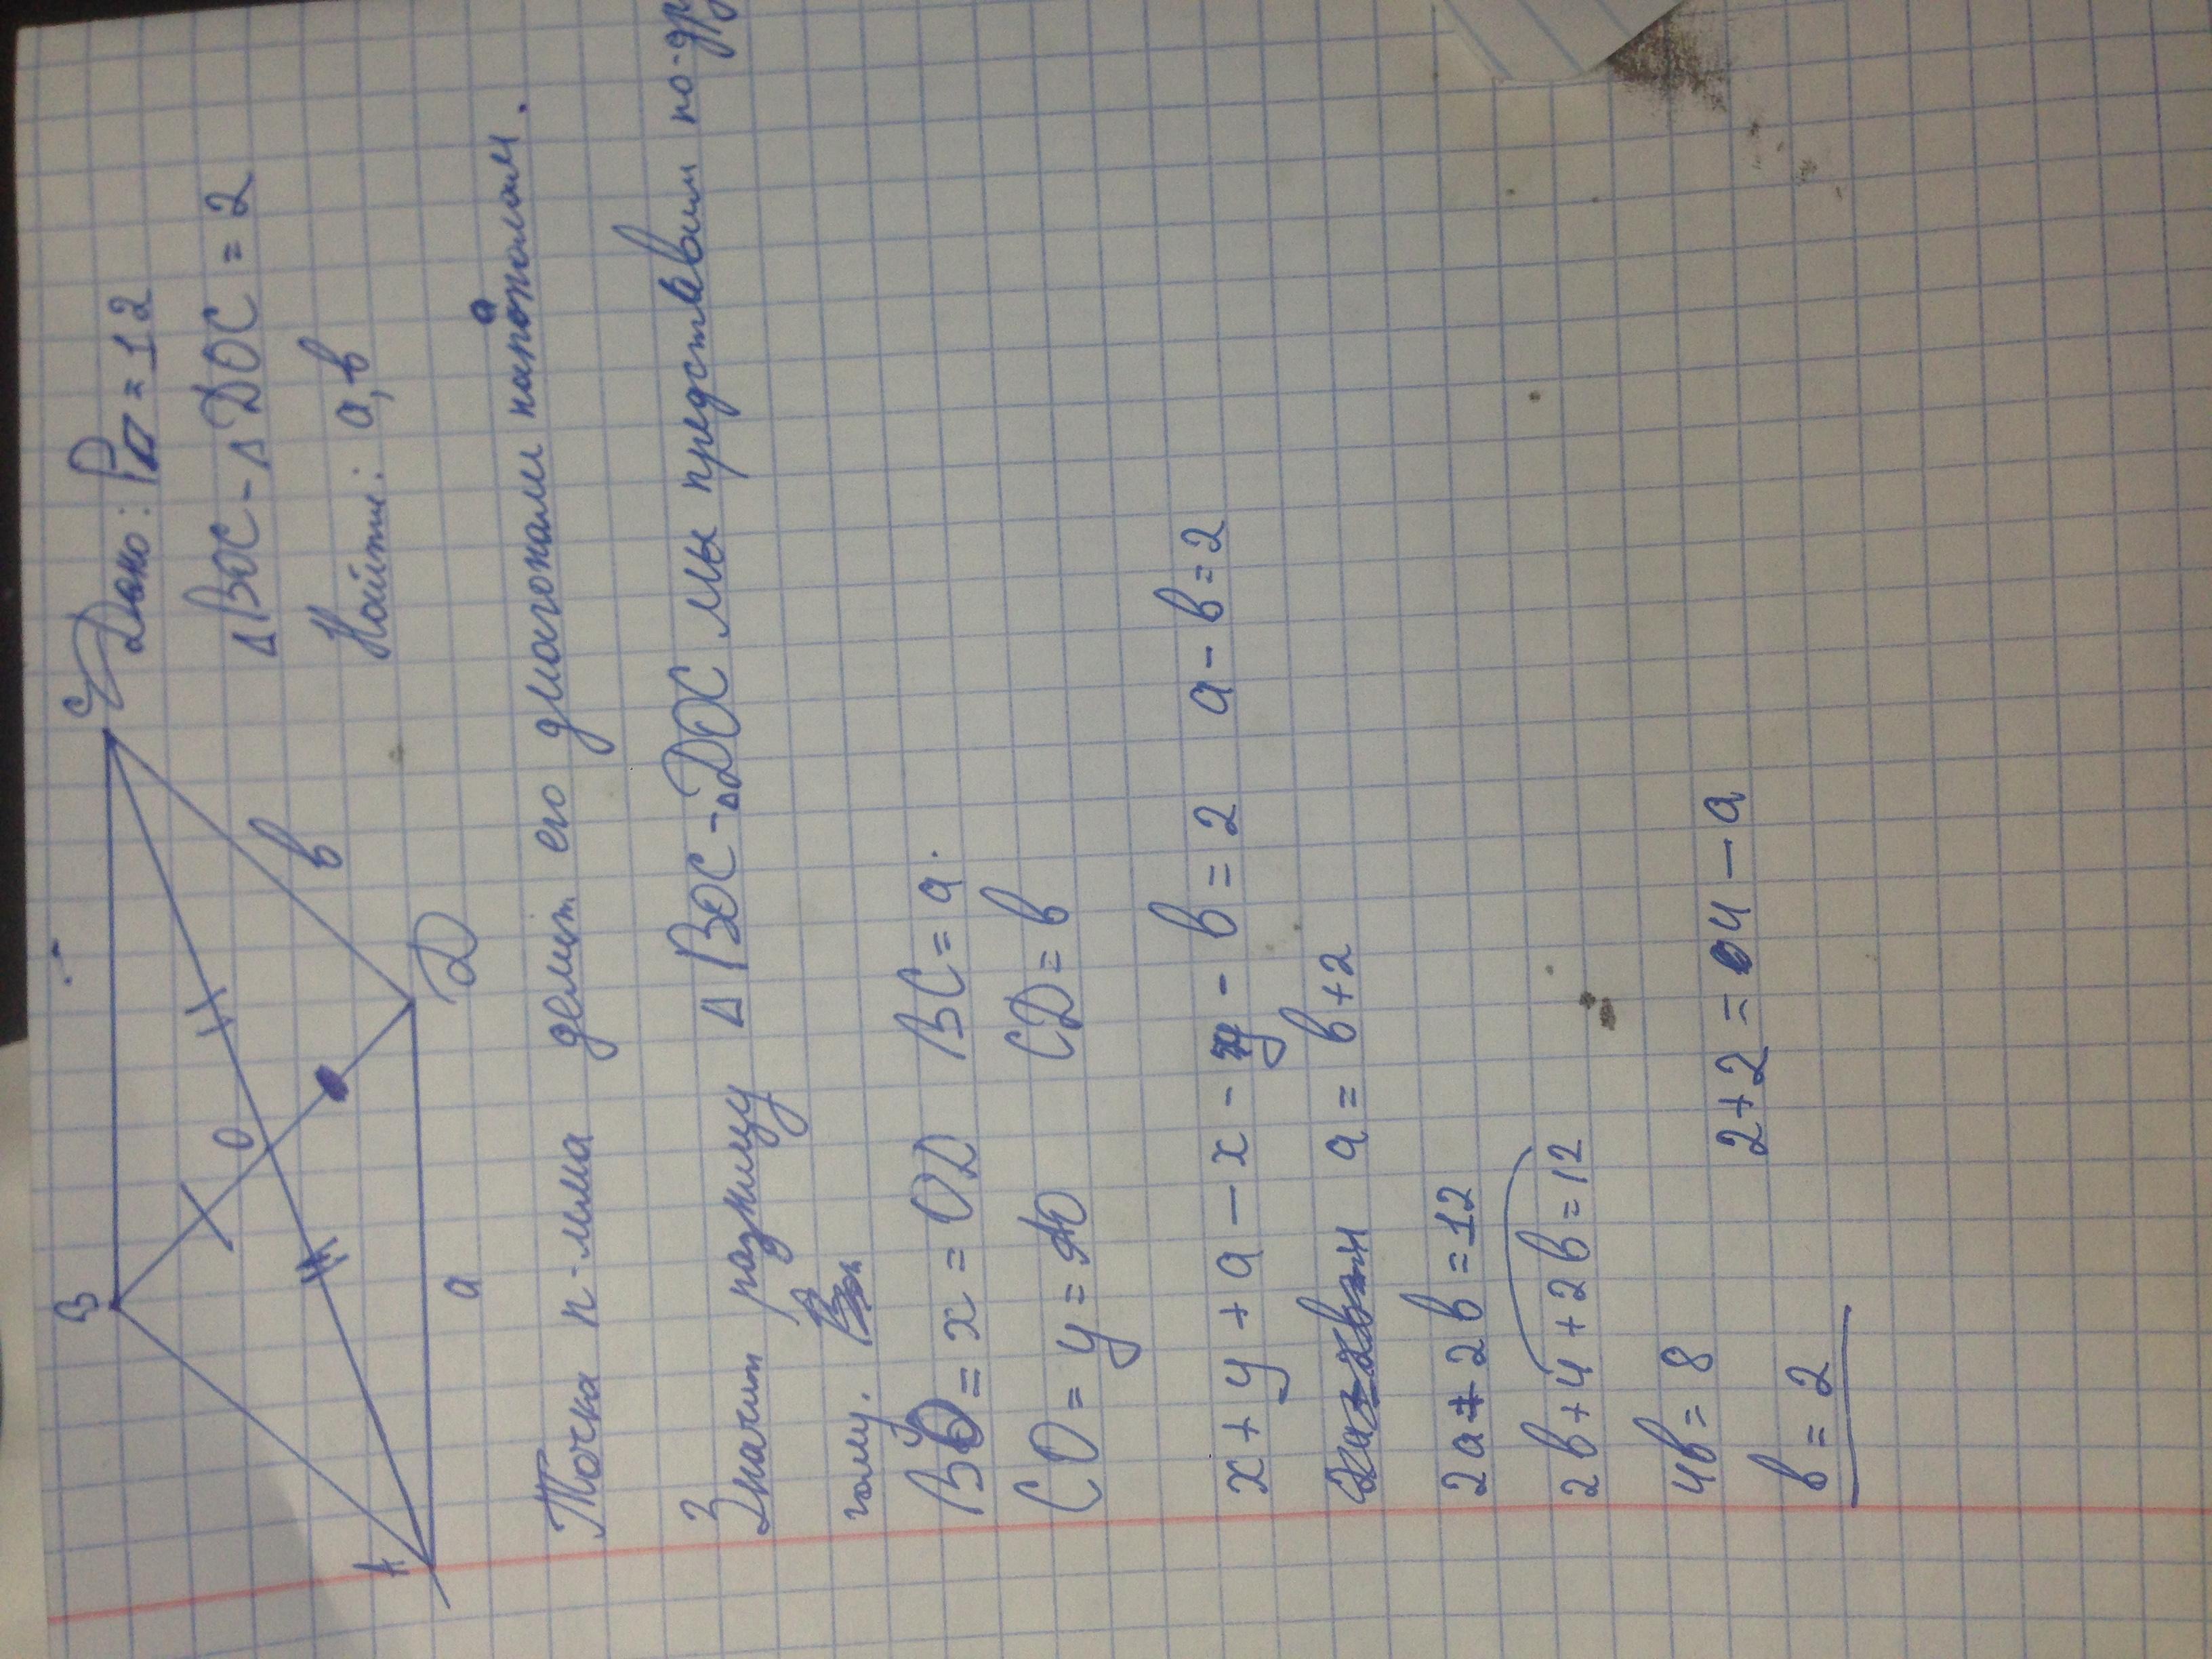 B
C
O
b
A
a
D
Дано: P▱ = 12
△BOC - △DOC = 2
Найти: a, b
Точка п-мма делит его диагонали напополам.
Значит разницу △BOC - △DOC мы представим по-др
гому.
BO = x = OD BC = a.
CO = y = AO CD = b
x + y + a - x - y - b = 2 a - b = 2
a = b + 2
2a + 2b = 12
2b + 4 + 2b = 12
4b = 8
b = 2
2 + 2 = 4 - a